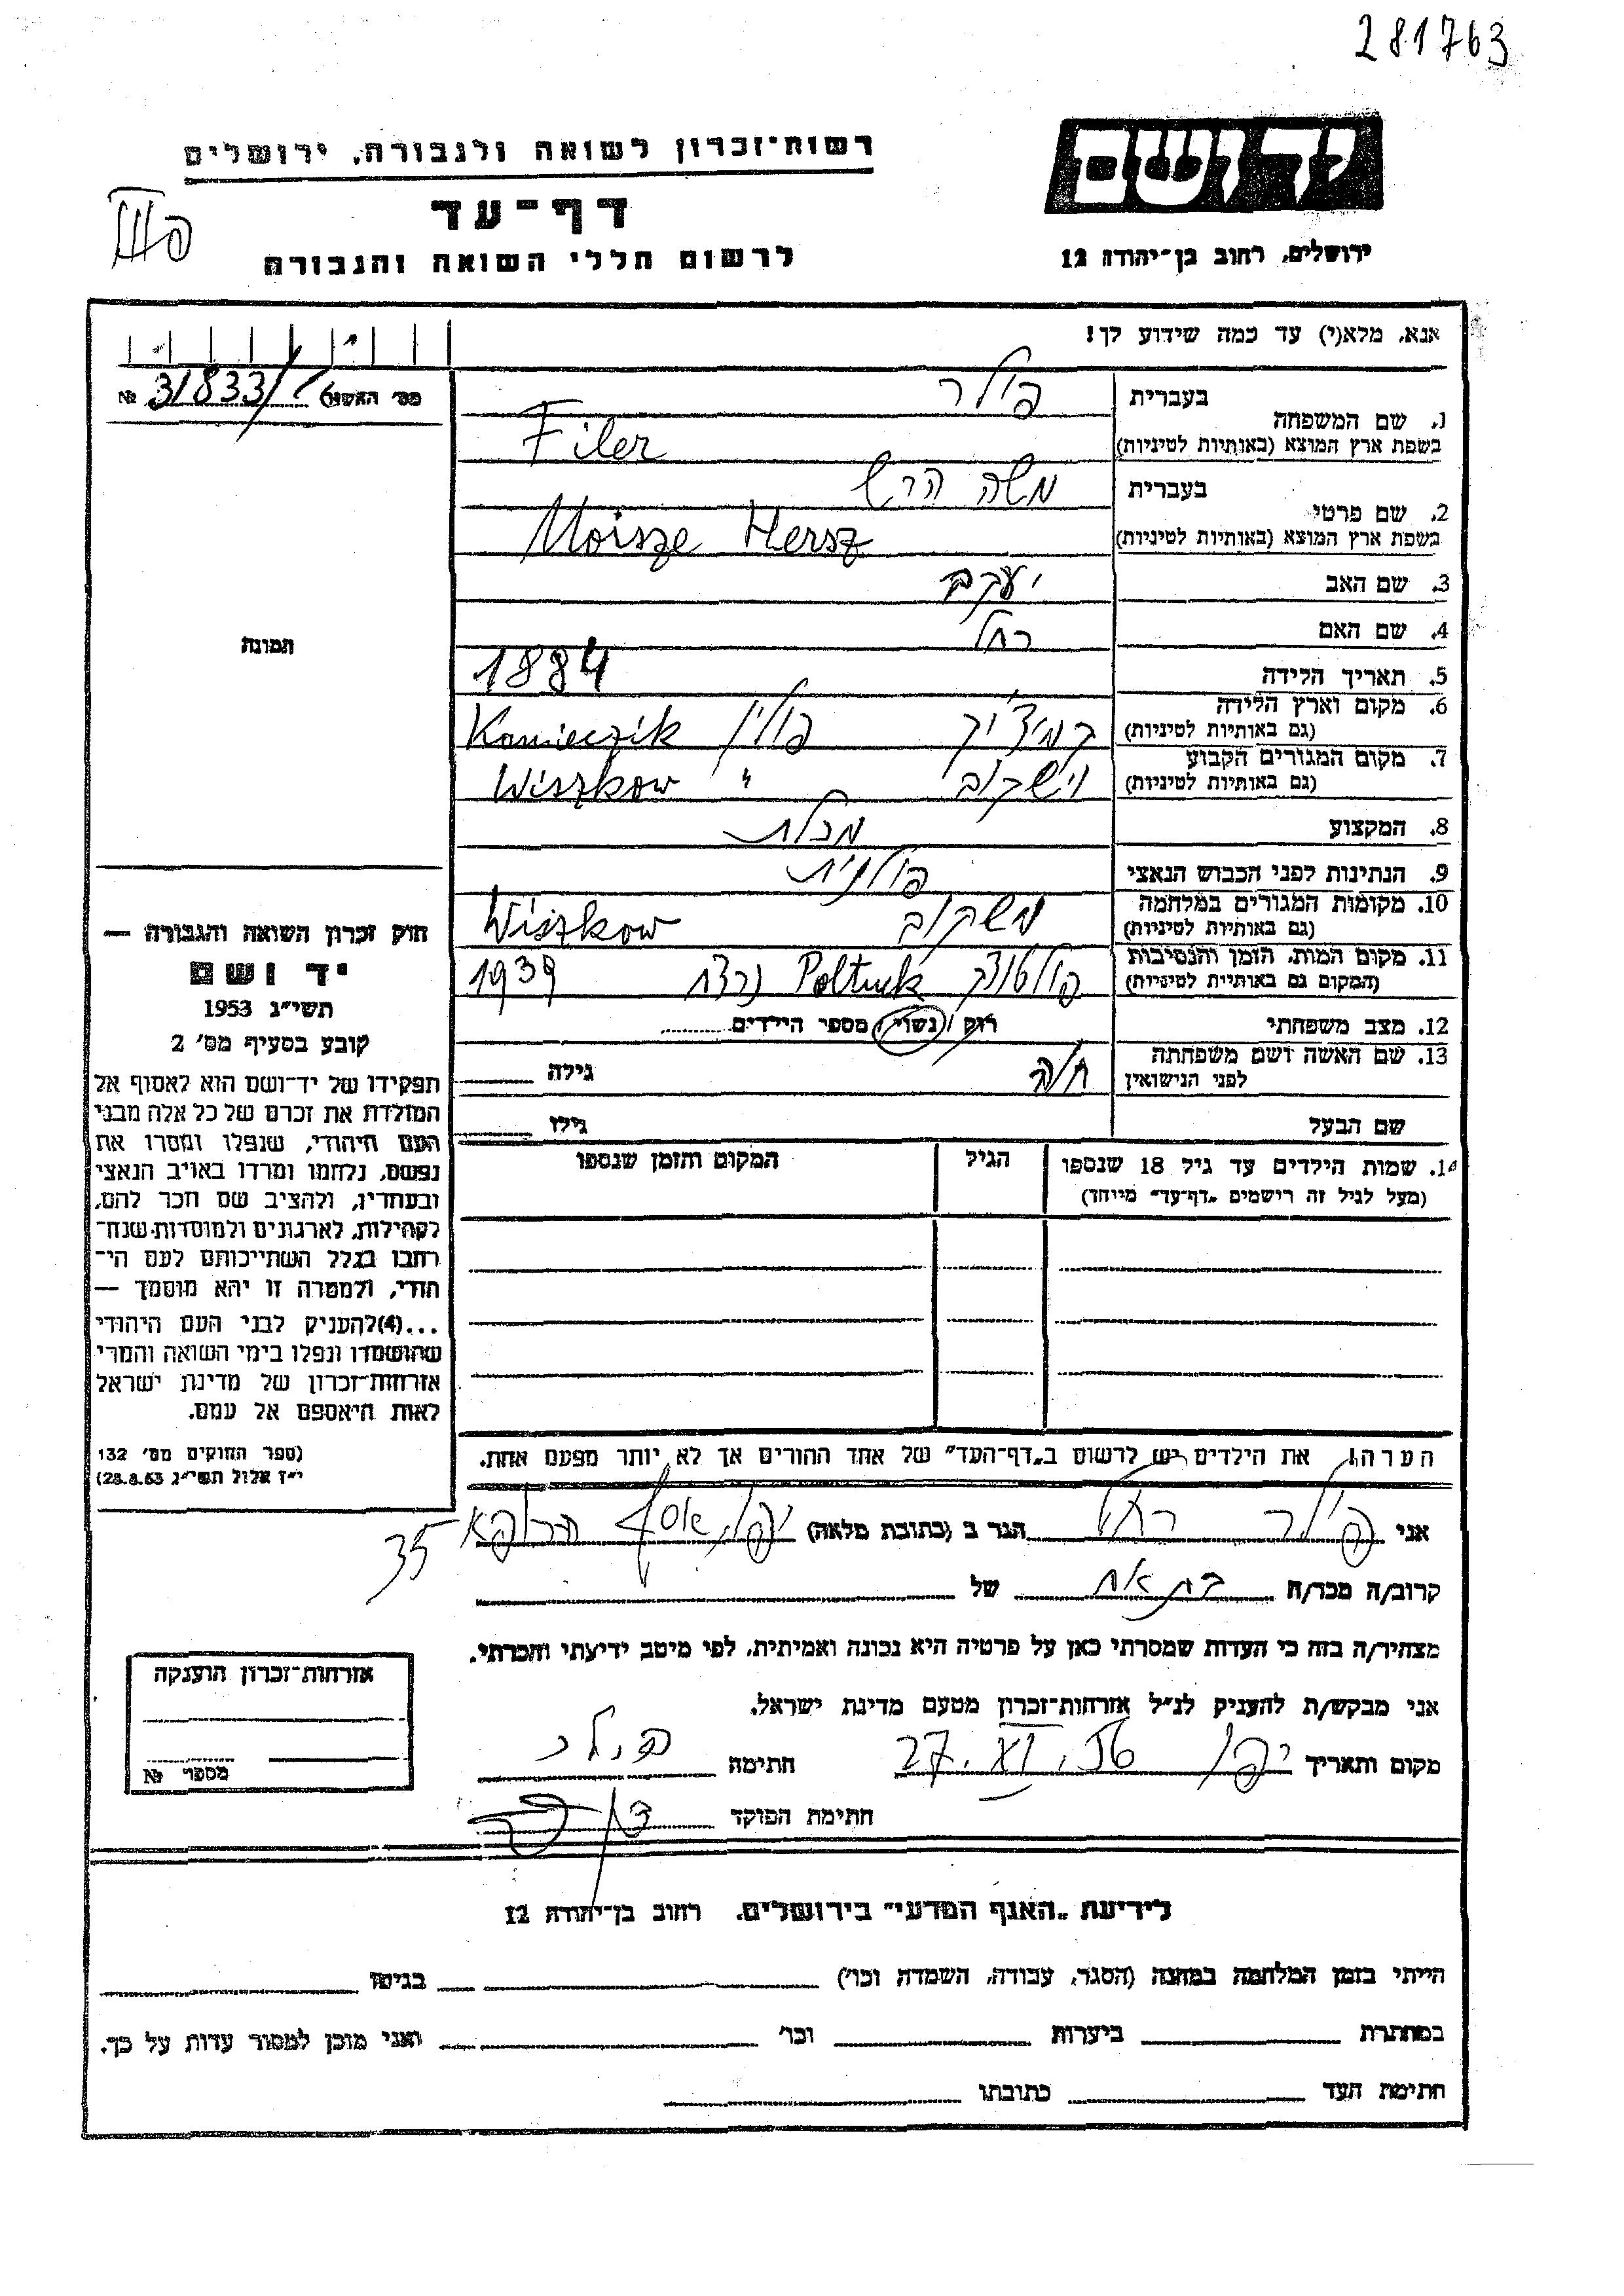 281763
רשות־זכרון לשואה ולגבורה, ירושלים
יד ושם
דף־עד
לרשום חללי השואה והגבורה
ירושלים, רחוב בן־יהודה 12
אנא, מלא(י) עד כמה שידוע לך!
מס׳ האשה № 31833/6
1. שם המשפחה
בעברית פילר
בשפת ארץ המוצא (באותיות לטיניות) Filer
2. שם פרטי
בעברית משה הרש
בשפת ארץ המוצא (באותיות לטיניות) Moisze Hersz
3. שם האב יעקב
4. שם האם רחל
5. תאריך הלידה 1884
6. מקום וארץ הלידה
(גם באותיות לטיניות) קמיצ׳יק פולין Kamieczik
7. מקום המגורים הקבוע
(גם באותיות לטיניות) וישקוב " Wiszkow
8. המקצוע
9. הנתינות לפני הכבוש הנאצי פולנית
10. מקומות המגורים במלחמה
(גם באותיות לטיניות) וישקוב Wiszkow
11. מקום המות, הזמן והנסיבות
(המקום גם באותיות לטיניות) פולטוסק Poltusk נרצח 1939
12. מצב משפחתי רווק / נשוי / מספר הילדים
13. שם האשה ושם משפחתה
לפני הנישואין חיה גילה
שם הבעל גילו
תמונה
חוק זכרון השואה והגבורה —
יד ושם
תשי״ג 1953
קובע בסעיף מס׳ 2
תפקידו של יד־ושם הוא לאסוף אל
המולדת את זכרם של כל אלה מבני
העם היהודי, שנפלו ומסרו את
נפשם, נלחמו ומרדו באויב הנאצי
ובעוזריו, ולהציב שם וזכר להם,
לקהילות, לארגונים ולמוסדות שנח־
רבו בגלל השתייכותם לעם הי־
הודי, ולמטרה זו יהא מוסמך —
...(4) להעניק לבני העם היהודי
שהושמדו ונפלו בימי השואה והמרי
אזרחות־זכרון של מדינת ישראל
לאות היאספם אל עמם.
(ספר החוקים מס׳ 132
י״ז אלול תשי״ג 28.8.53)
14. שמות הילדים עד גיל 18 שנספו הגיל המקום והזמן שנספו
(מעל לגיל זה רישמים „דף־עד״ מייחד)
הערה: את הילדים יש לרשום ב„דף־העד״ של אחד ההורים אך לא יותר מפעם אחת.
אני פילר רחל הגר ב (כתובת מלאה) יפו, אסף הרופא 35
קרוב/ה מכר/ה בת אח של
מצהיר/ה בזה כי העדות שמסרתי כאן על פרטיה היא נכונה ואמיתית, לפי מיטב ידיעתי והכרתי.
אני מבקש/ת להעניק לנ״ל אזרחות־זכרון מטעם מדינת ישראל.
מקום ותאריך יפו 27.XI.56 חתימה
חתימת הפוקד
אזרחות־זכרון הוענקה
מספר №
לידיעת „האגף המדעי״ בירושלים, רחוב בן־יהודה 12
הייתי בזמן המלחמה במחנה (הסגר, עבודה, השמדה וכו׳) בגיטו
במחתרת ביערות וכו׳ ואני מוכן למסור עדות על כך.
חתימת העד כתובתו